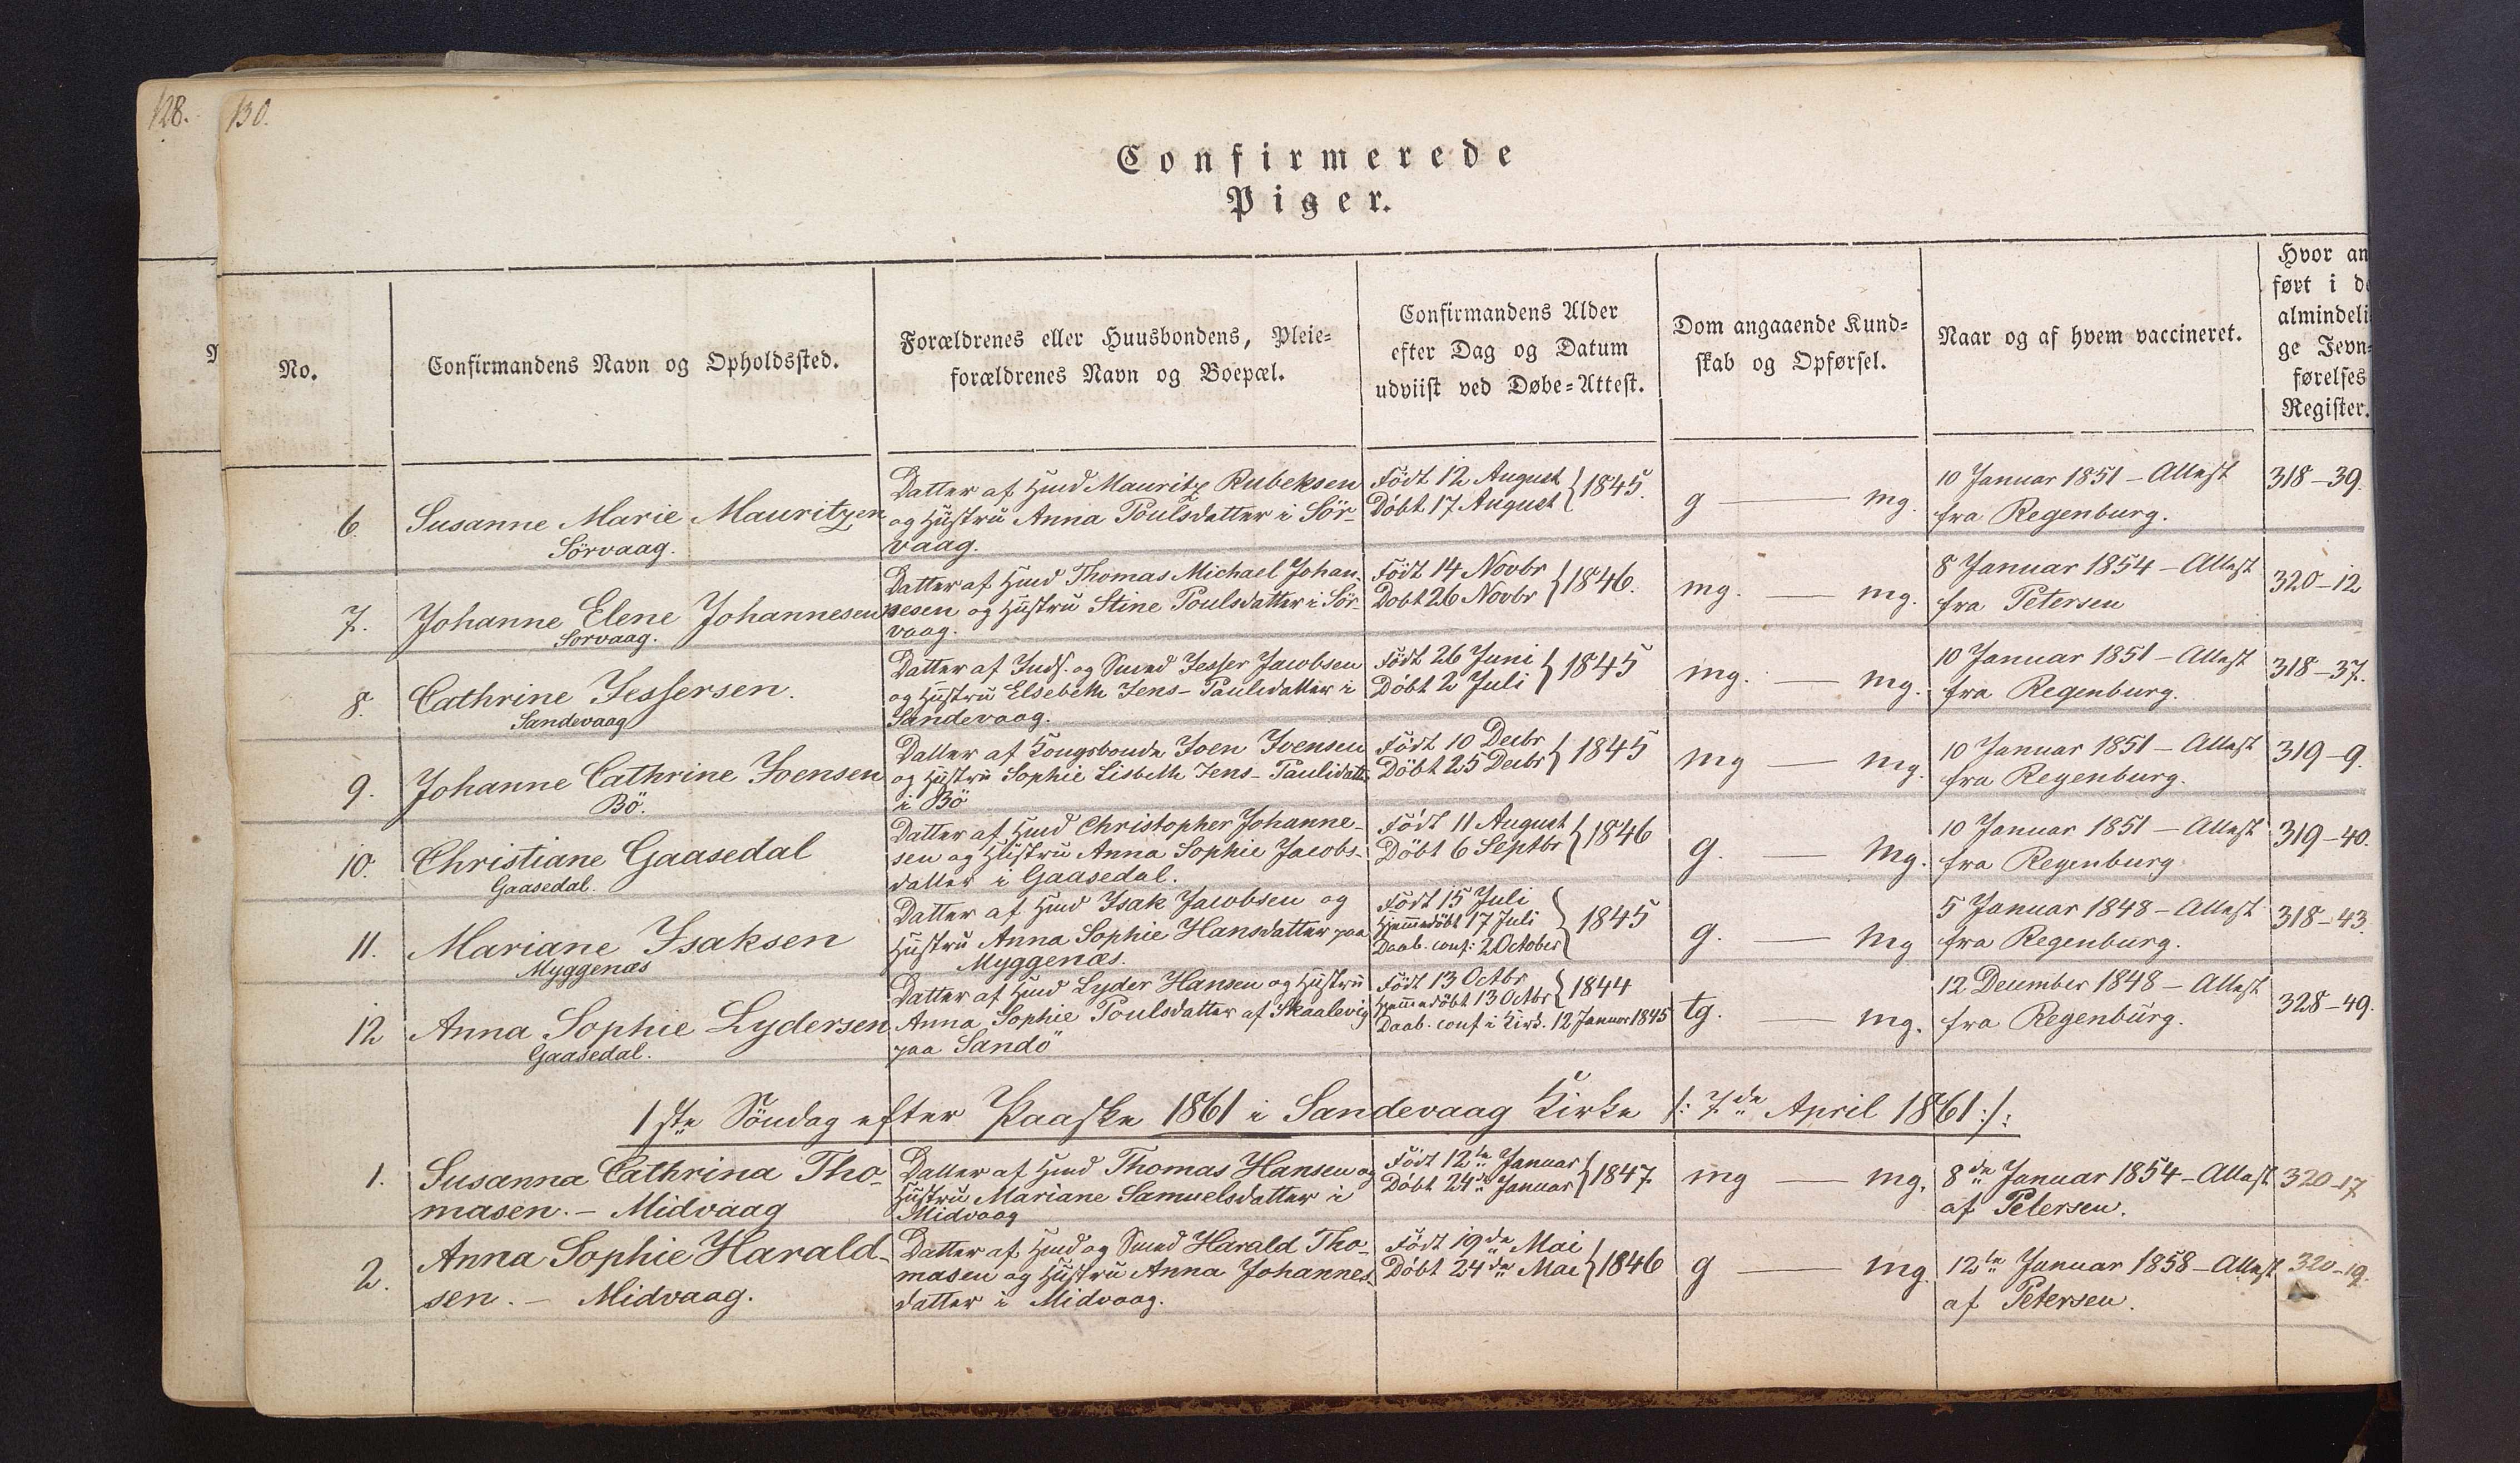 128.
130.
Confirmerede
Piger.
No.
Confirmandens Navn og Opholdssted.
Forældrenes eller Huusbondens, Pleie=
forældrenes Navn og Boepæl.
Confirmandens Alder
efter Dag og Datum
udviist ved Døbe=Attest.
Dom angaaende Kund=
skab og Opførsel.
Naar og af hvem vaccineret.
Hvor an
ført i de
almindeli
ge Jevn=
førelses
Register.
6. Susanne Marie Mauritzen
Sörvaag.
Datter af Huusmd Mauritz Rubeksen
og Hustru Anna Poulsdatter i Sör-
vaag.
Födt 12 August
Döbt 17 August } 1845.
g — mg.
10 Januar 1851 - Attest
fra Regenburg.
318-39.
7. Johanne Elene Johannesen
Sorvaag.
Datter af Hmd Thomas Michael Johan-
nesen og Hustru Stine Poulsdatter i Sör-
vaag.
Födt 14 Novbr
Dobt 26 Novbr } 1846.
mg. — mg.
8 Januar 1854 - Attest
fra Petersen
320-12
8. Cathrine Jessersen.
Sandevaag
Datter af Inds. og Smed Jesser Jacobsen
og Hustru Elsebeth Jens-Paulidatter i
Sandevaag.
Födt 26 Juni
Döbt 2 Juli } 1845
mg. — mg.
10 Januar 1851 - Attest
fra Regenburg.
318-37.
9. Johanne Cathrine Joensen
Bö.
Datter af Kongsbonde Joen Joensen
og Hustru Sophie Lisbeth Jens-Paulidatter
i Bö
Födt 10 Decbr
Döbt 25 Decbr } 1845
mg — mg.
10 Januar 1851 - Attest
fra Regenburg.
319-9.
10. Christiane Gaasedal
Gaasedal.
Datter af Hmd Christopher Johanne-
sen og Hustru Anna Sophie Jacobs-
datter i Gaasedal.
Födt 11 August
Döbt 6 Septbr } 1846
g. — mg.
10 Januar 1851 - Attest
fra Regenburg
319-40.
11. Mariane Isaksen
Myggenæs
Datter af Hmd Isak Jacobsen og
Hustru Anna Sophie Hansdatter paa
Myggenæs.
Födt 15 Juli
Hjemmedöbt 17 Juli
Daab. conf: 2 October } 1845
g. — mg
5 Januar 1848 - Attest
fra Regenburg.
318-43.
12 Anna Sophie Lydersen
Gaasedal.
Datter af Hmd Lyder Hansen og Hustru
Anna Sophie Poulsdatter af Skaalevig
paa Sandö
Födt 13 Octbr
Hjemmedöbt 13 Octbr } 1844
Daab. conf i Kirk. 12 Januar 1845
tg. — mg.
12 December 1848 - Attest
fra Regenburg.
328-49.
1ste Söndag efter Paaske 1861 i Sandevaag Kirke /: 7de April 1861 :/:
1. Susanna Cathrina Tho-
masen. - Midvaag
Datter af Hmd Thomas Hansen og
Hustru Mariane Samuelsdatter i
Midvaag
Födt 12te Januar
Döbt 24de Januar } 1847.
mg — mg.
8de Januar 1854 - Attest
af Petersen.
320-17
2. Anna Sophie Harald-
sen. - Midvaag.
Datter af Hmd og Smed Harald Tho-
masen og Hustru Anna Johannes-
datter i Midvaag.
Födt 19de Mai
Döbt 24de Mai } 1846
g — mg.
12te Januar 1858 - Attest
af Petersen.
320-19.